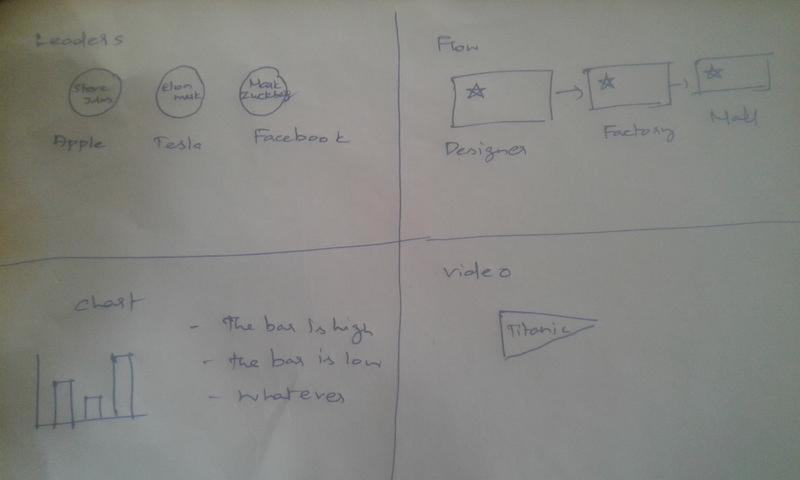 Leaders
Steve
Jobs
Elon
musk
Mark
Apple
Tesla
Facebook
Flow
Designer
Factory
Mall
chart
- The bar is high
- the bar is low
- whatever
video
Titanic